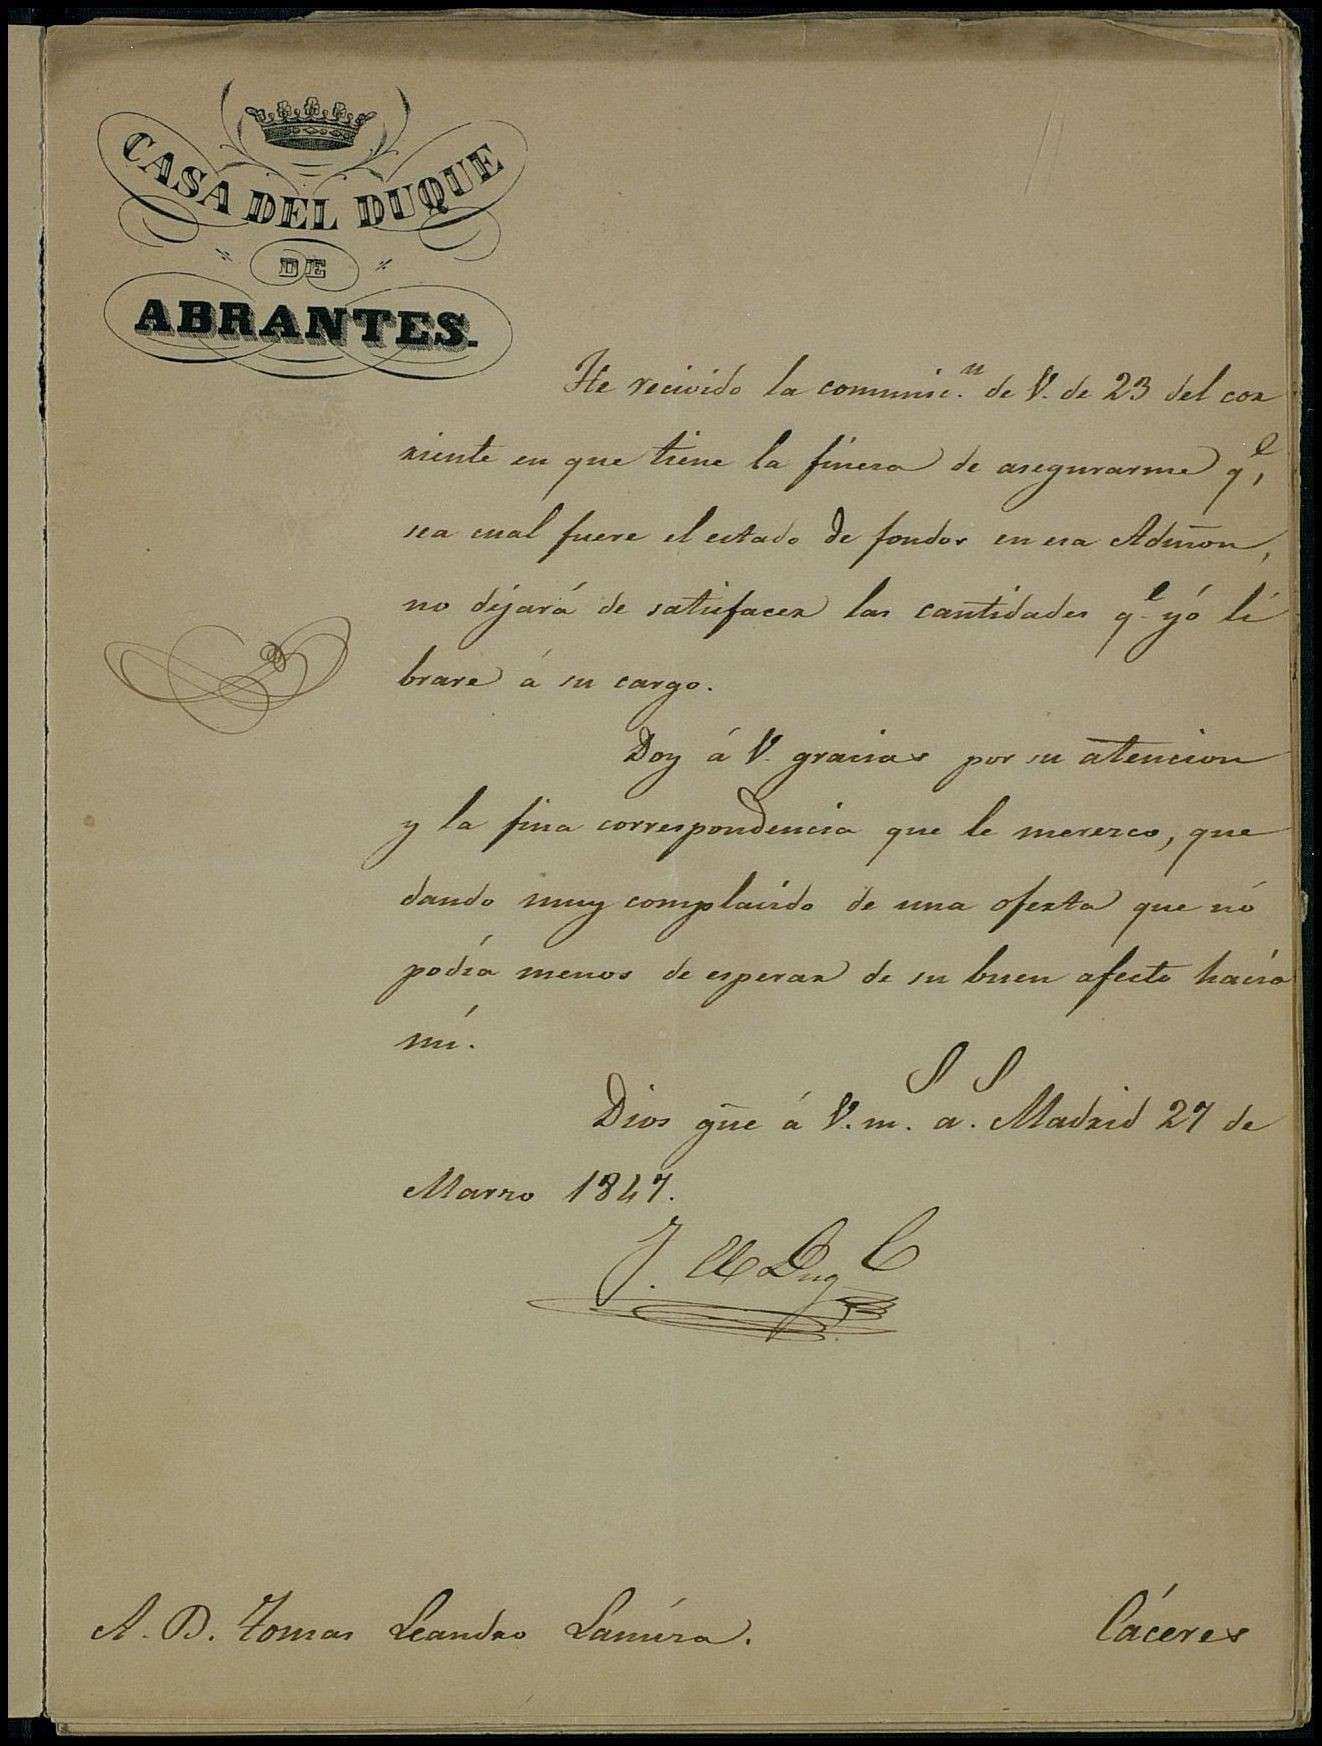 CASA DEL DUQUE
DE
ABRANTES.
He recivido la comunic.n de V. de 23 del cor
riente en que tiene la finesa de asegurarme q.e,
sea cual fuere el estado de fondos en esa Admon̄,
no dejará de satisfacer las cantidades q.e yó li
brare á su cargo.
Doy á V. gracias por su atencion
y la fina correspondencia que le merezco, que
dando muy complacido de una oferta que nó
podía menos de esperar de su buen afecto hacia
mí.
Dios gūe á V. m.s a.s Madrid 27 de
Marzo 1847.
J. El Duq
A. D. Tomas Leandro
Cáceres